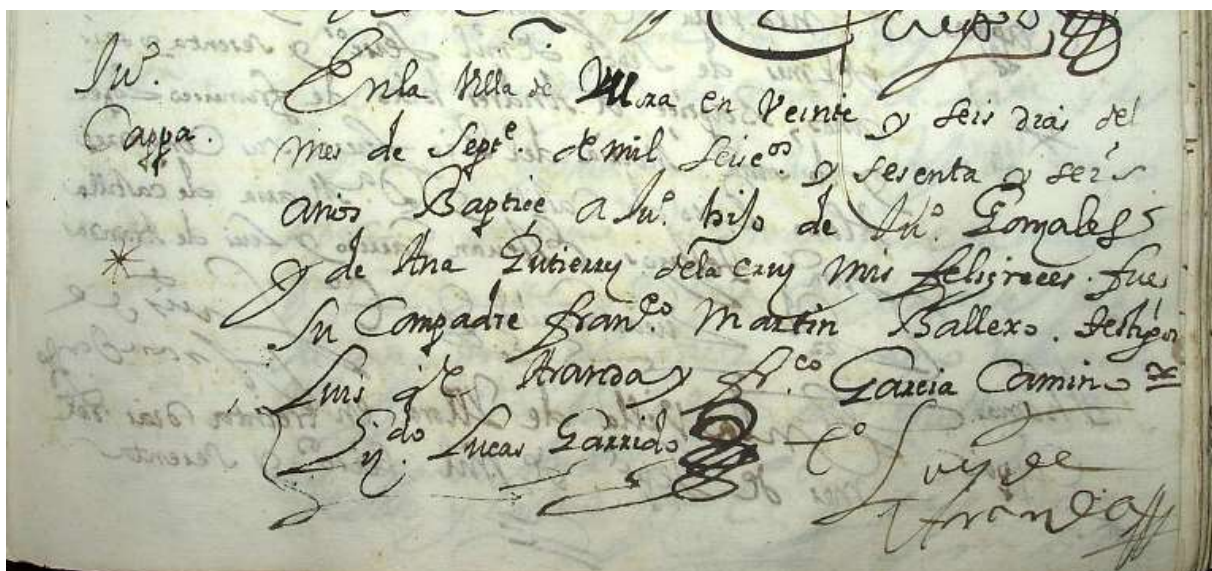 Juº.
Cappa.
En la Villa de Mora en Veinte y seis dias del
mes de Septe. de mil seiscos. y sesenta y seis
anos Baptice a Juº. hijo de Juº. Gonzales
y de Ana Gutierrz de la cruz mis feligreces. fue
su Compadre franco. Martin Ballexo. testigos
Luis de Aranda y frco Garcia Camino
Ldo Lucas Garrido
tº Luis de
Aranda